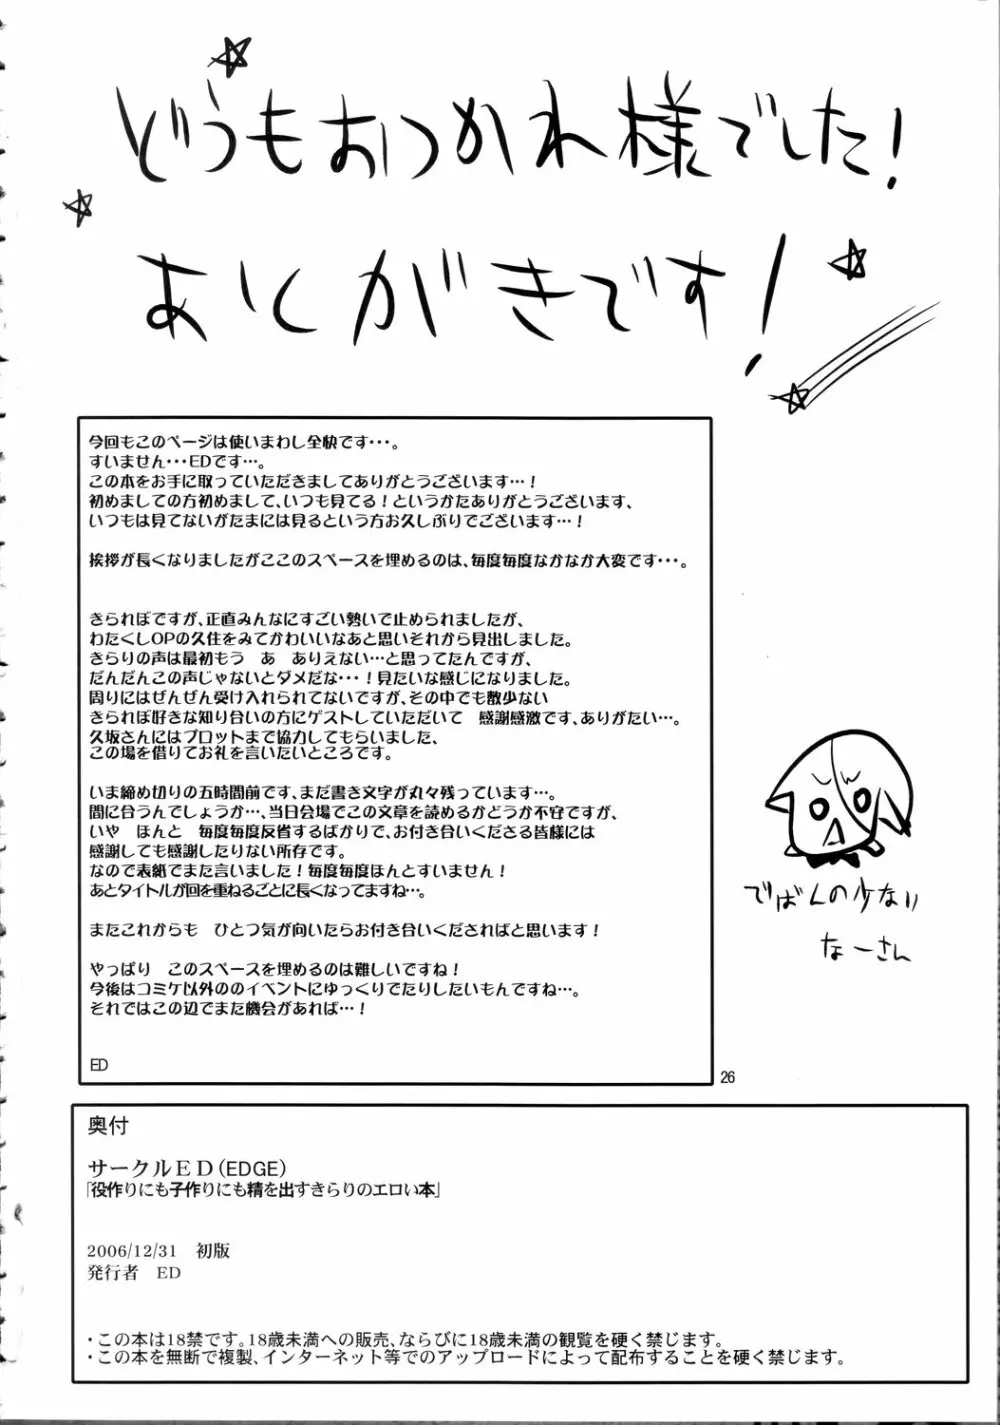 どうもおつかれ様でした!
あとがきです!
今回もこのページは使いまわし全快です・・・。
すいません・・・EDです…。
この本をお手に取っていただきましてありがとうございます…!
初めましての方初めまして、いつも見てる!というかたありがとうございます、
いつもは見てないがたまには見るという方お久しぶりでございます…!
挨拶が長くなりましたがここのスペースを埋めるのは、毎度毎度なかなか大変です・・・。
きられぼですが、正直みんなにすごい勢いで止められましたが、
わたくしOPの久住をみてかわいいなあと思いそれから見出しました。
きらりの声は最初もう　あ　ありえない…と思ってたんですが、
だんだんこの声じゃないとダメだな・・・!見たいな感じになりました。
周りにはぜんぜん受け入れられてないですが、その中でも数少ない
きられぼ好きな知り合いの方にゲストしていただいて　感謝感激です、ありがたい…。
久坂さんにはプロットまで協力してもらいました、
この場を借りてお礼を言いたいところです。
いま締め切りの五時間前です、まだ書き文字が丸々残っています…。
間に合うんでしょうか…、当日会場でこの文章を読めるかどうか不安ですが、
いや　ほんと　毎度毎度反省するばかりで、お付き合いくださる皆様には
感謝しても感謝したりない所存です。
なので表紙でまた言いました!毎度毎度ほんとすいません!
あとタイトルが回を重ねるごとに長くなってますね…。
またこれからも　ひとつ気が向いたらお付き合いくださればと思います!
やっぱり　このスペースを埋めるのは難しいですね!
今後はコミケ以外ののイベントにゆっくりでたりしたいもんですね…。
それではこの辺でまた機会があれば…!
ED
でばんの少ない
なーさん
26
奥付
サークルＥＤ(EDGE)
「役作りにも子作りにも精を出すきらりのエロい本」
2006/12/31　初版
発行者　ED
・この本は18禁です。18歳未満への販売、ならびに18歳未満の観覧を硬く禁じます。
・この本を無断で複製、インターネット等でのアップロードによって配布することを硬く禁じます。